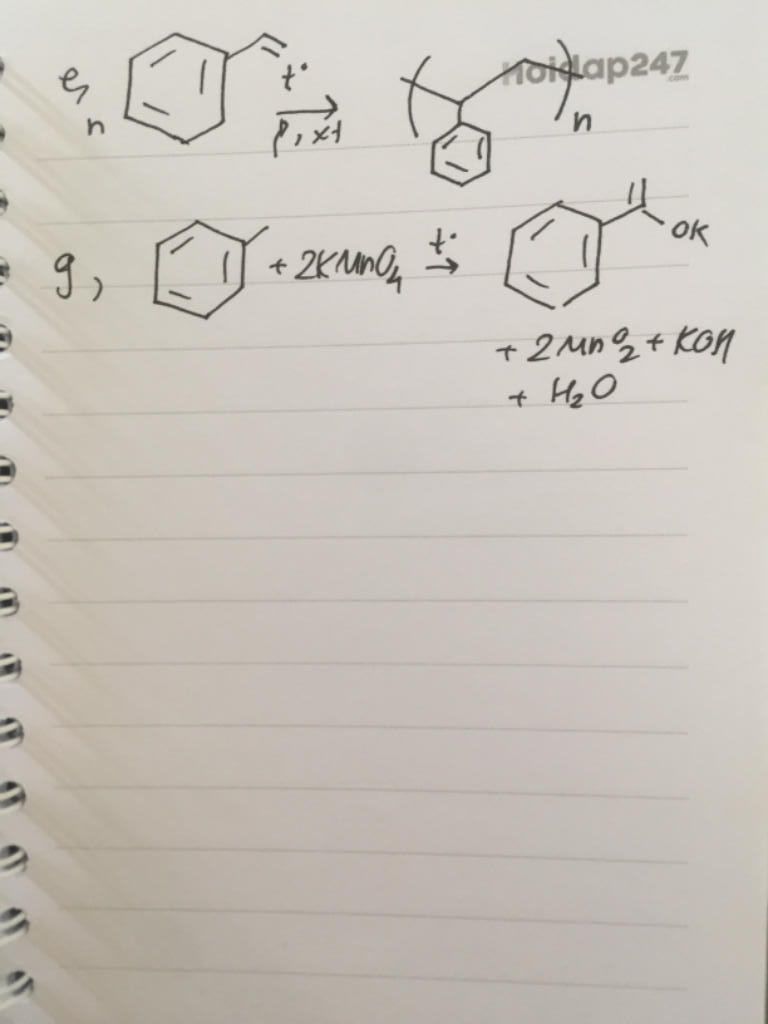 e,
n
t°
p, xt
n
Hoidap247
.com
g, + 2KMnO4 t° → OK
+ 2MnO2 + KOH
+ H2O